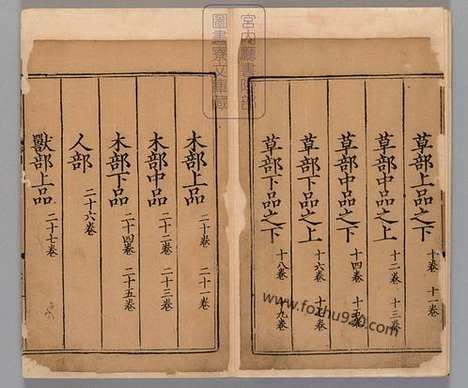 草部上品之下 十卷 十一卷
草部中品之上 十二卷 十三卷
草部中品之下 十四卷 十五卷
草部下品之上 十六卷 十七卷
草部下品之下 十八卷 十九卷
木部上品 二十卷 二十一卷
木部中品 二十二卷 二十三卷
木部下品 二十四卷 二十五卷
人部 二十六卷
獸部上品 二十七卷
宮内廳書陵部
圖書寮文庫藏
www.fozhu920.com